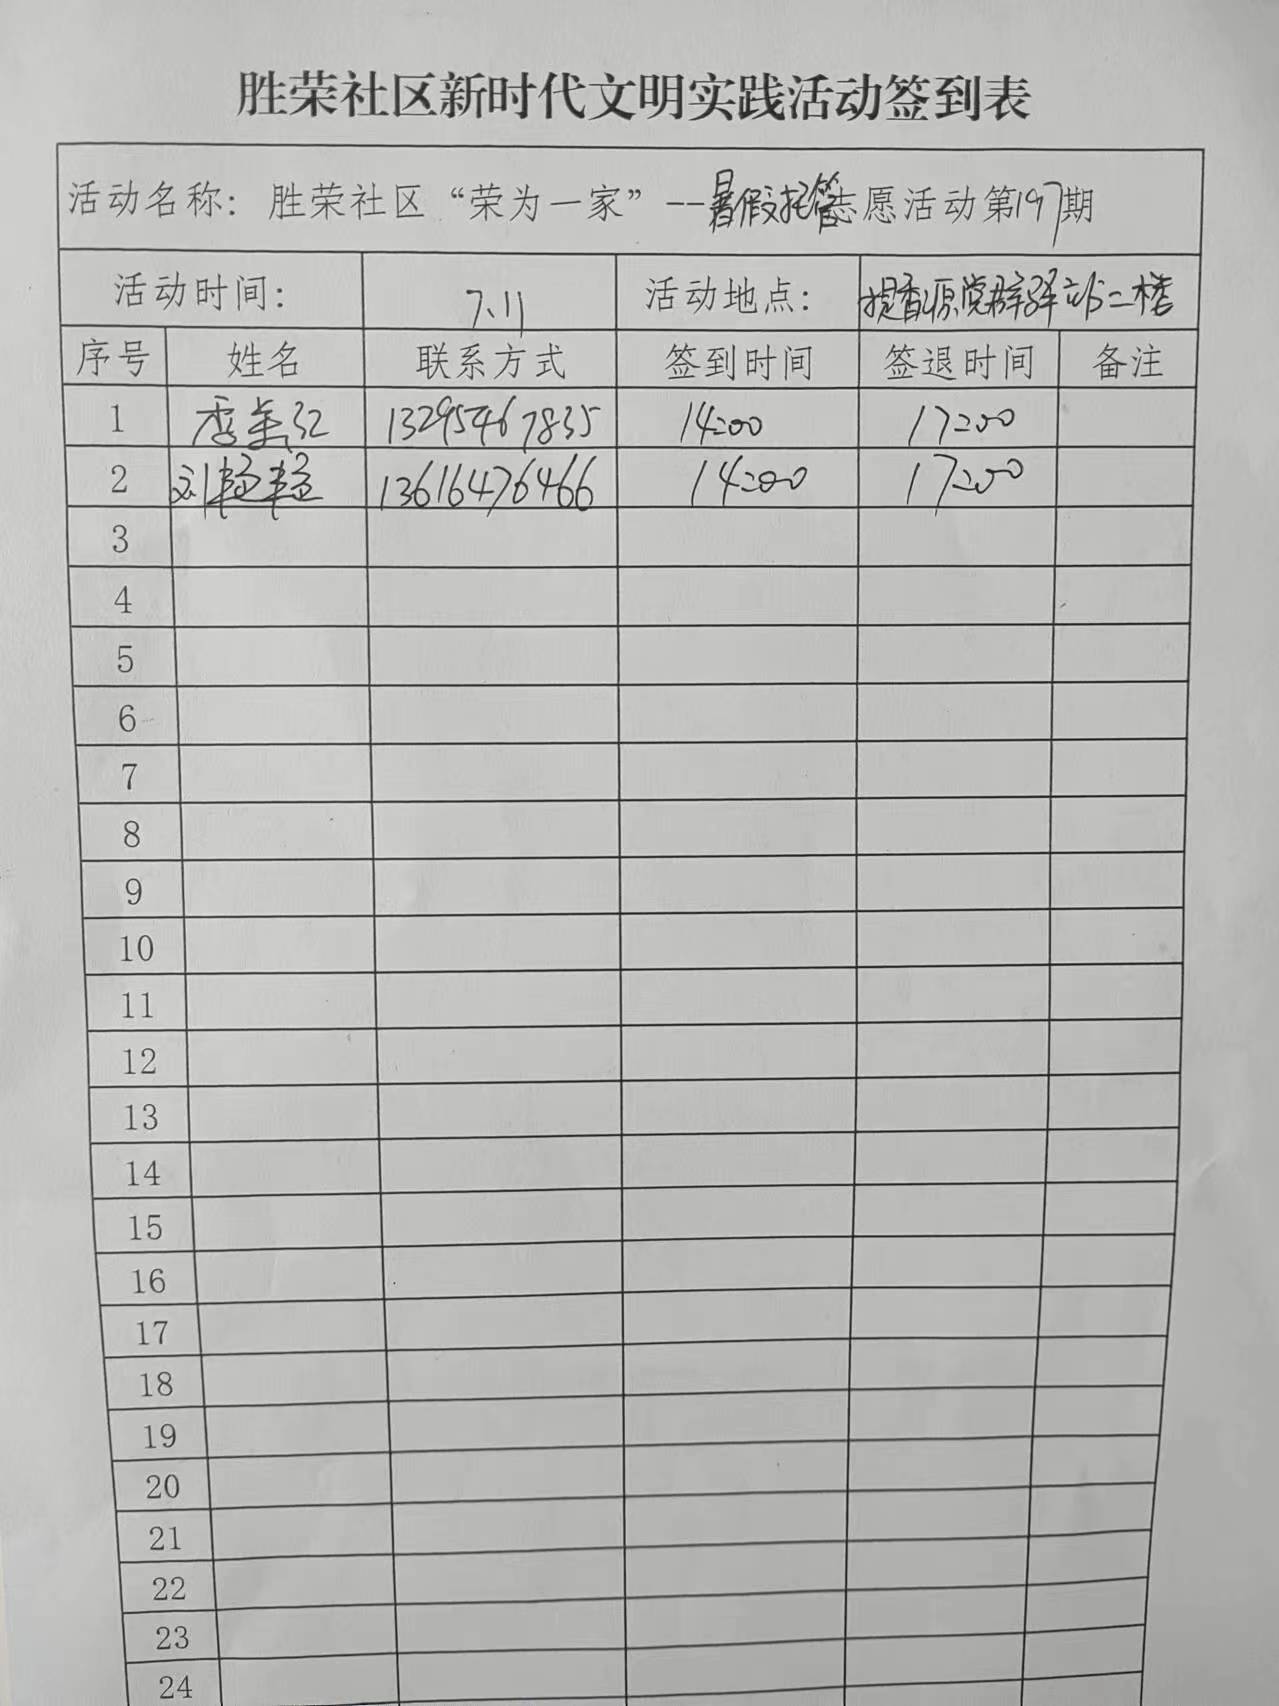 胜荣社区新时代文明实践活动签到表
活动名称：胜荣社区“荣为一家”--暑假托管志愿活动第197期
活动时间： 7.11 活动地点： 提香源党群驿站二楼
序号 姓名 联系方式 签到时间 签退时间 备注
1 13295467835 14:00 17:00
2 刘 13616476466 14:00 17:00
3
4
5
6
7
8
9
10
11
12
13
14
15
16
17
18
19
20
21
22
23
24